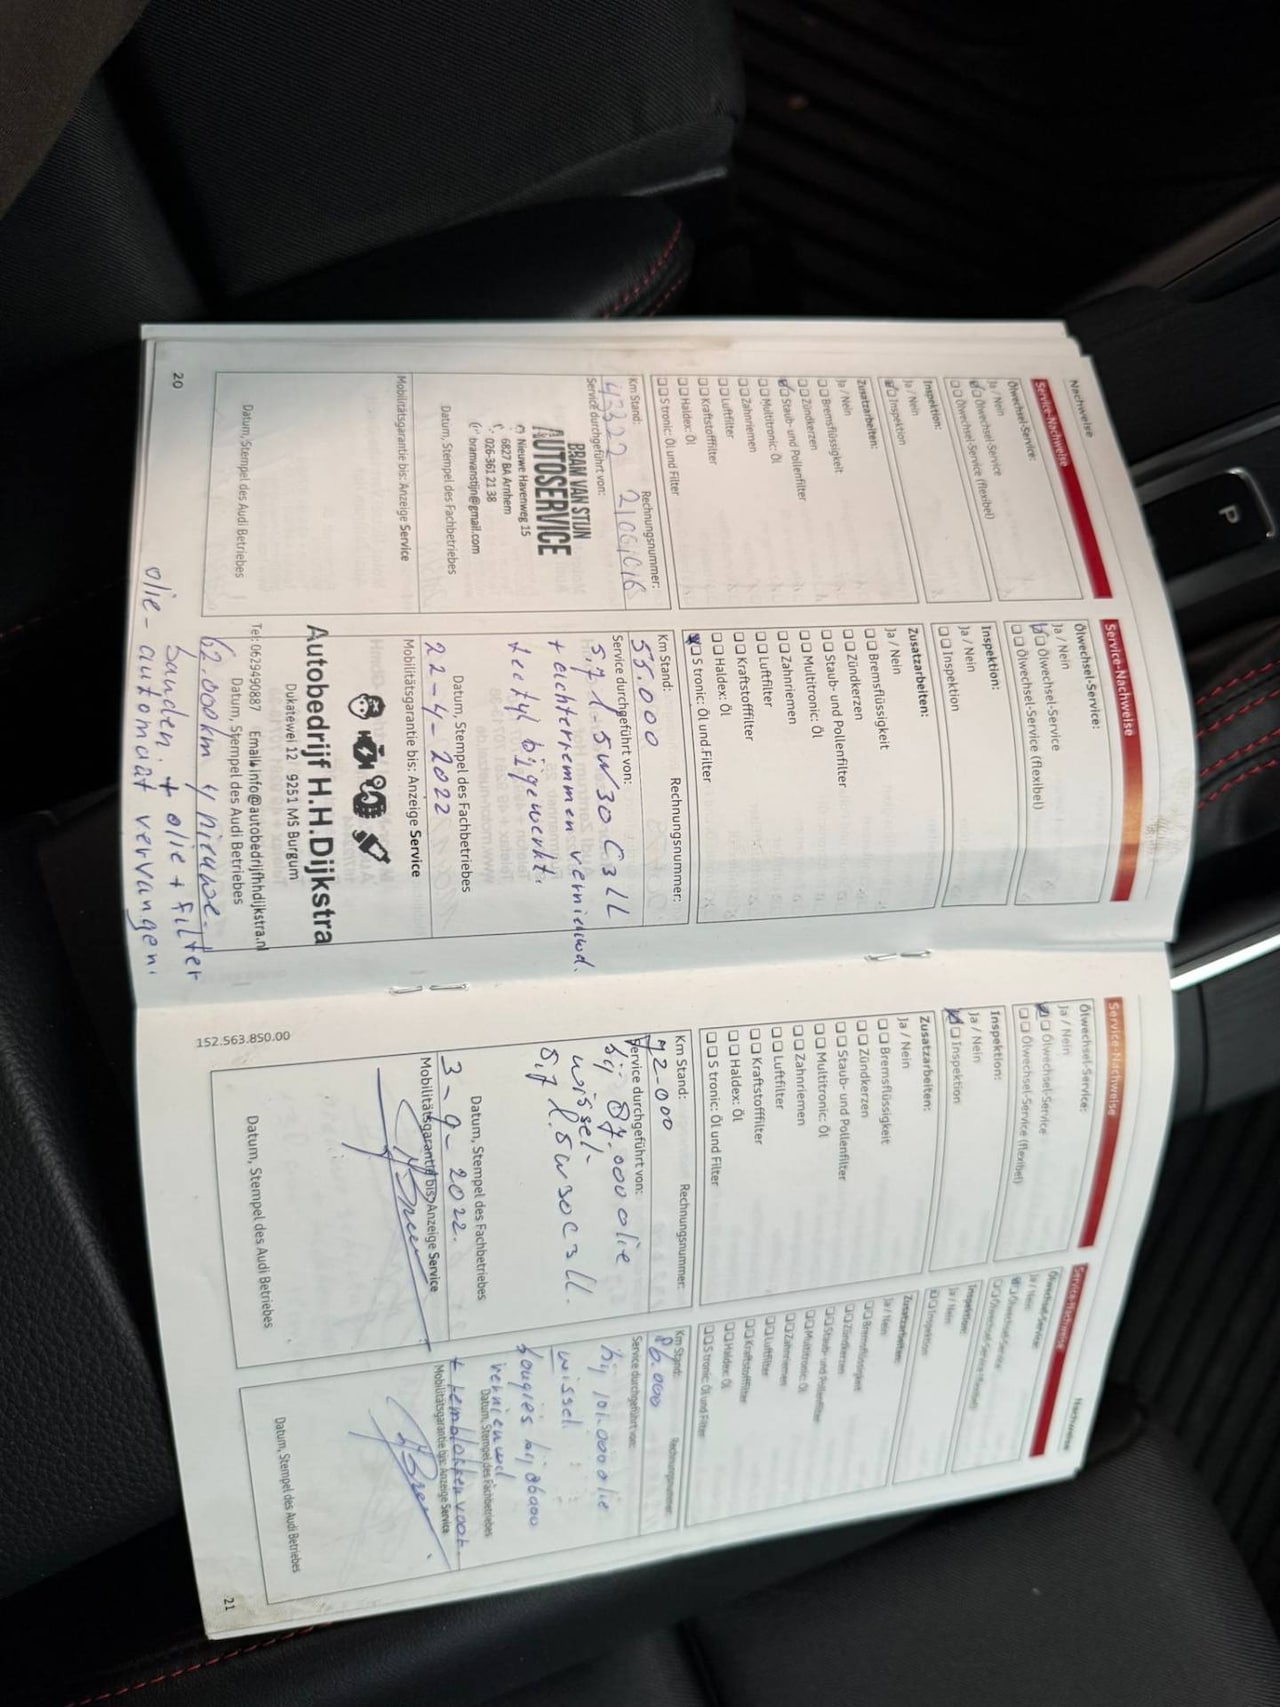 Nachweise
Service-Nachweise
Ölwechsel-Service:
Ja / Nein
Ölwechsel-Service
Ölwechsel-Service (flexibel)
Inspektion:
Ja / Nein
Inspektion
Zusatzarbeiten:
Ja / Nein
Bremsflüssigkeit
Zündkerzen
Staub- und Pollenfilter
Multitronic: Öl
Zahnriemen
Luftfilter
Kraftstofffilter
Haldex: Öl
S tronic: Öl und Filter
Km Stand: Rechnungsnummer:
Service durchgeführt von:
BRAM VAN STIJN
AUTOSERVICE
Nieuwe Havenweg 15
6827 BA Arnhem
026-361 21 38
bramvanstijn@gmail.com
Datum, Stempel des Fachbetriebes
Mobilitätsgarantie bis: Anzeige Service
Datum, Stempel des Audi Betriebes
20
Service-Nachweise
Ölwechsel-Service:
Ja / Nein
Ölwechsel-Service
Ölwechsel-Service (flexibel)
Inspektion:
Ja / Nein
Inspektion
Zusatzarbeiten:
Ja / Nein
Bremsflüssigkeit
Zündkerzen
Staub- und Pollenfilter
Multitronic: Öl
Zahnriemen
Luftfilter
Kraftstofffilter
Haldex: Öl
S tronic: Öl und Filter
Km Stand: Rechnungsnummer:
55.000
Service durchgeführt von:
5,7 l-5w30 C3 LL
+ achterremmen vernieuwd.
tectyl bijgewerkt.
Datum, Stempel des Fachbetriebes
22-4-2022
Mobilitätsgarantie bis: Anzeige Service
Autobedrijf H.H.Dijkstra
Dukatewei 12 9251 MS Burgum
Tel: 0629490887 Email: info@autobedrijfhhdijkstra.nl
Datum, Stempel des Audi Betriebes
62.000km 4 nieuwe.
banden. + olie + filter
olie - automaat vervangen.
Service-Nachweise
Ölwechsel-Service:
Ja / Nein
Ölwechsel-Service
Ölwechsel-Service (flexibel)
Inspektion:
Ja / Nein
Inspektion
Zusatzarbeiten:
Ja / Nein
Bremsflüssigkeit
Zündkerzen
Staub- und Pollenfilter
Multitronic: Öl
Zahnriemen
Luftfilter
Kraftstofffilter
Haldex: Öl
S tronic: Öl und Filter
Km Stand: Rechnungsnummer:
72-000
Service durchgeführt von:
bij 87.000 olie
wissel-
5,7 l. 5w30 C3 LL.
Datum, Stempel des Fachbetriebes
3-9-2022.
Mobilitätsgarantie bis: Anzeige Service
Datum, Stempel des Audi Betriebes
152.563.850.00
Nachweise
Service-Nachweise
Ölwechsel-Service:
Ja / Nein
Ölwechsel-Service
Ölwechsel-Service (flexibel)
Inspektion:
Ja / Nein
Inspektion
Zusatzarbeiten:
Ja / Nein
Bremsflüssigkeit
Zündkerzen
Staub- und Pollenfilter
Multitronic: Öl
Zahnriemen
Luftfilter
Kraftstofffilter
Haldex: Öl
S tronic: Öl und Filter
Km Stand: Rechnungsnummer:
86.000
Service durchgeführt von:
bij 101.000 olie
wissel
bougies bij 86000
vernieuwd
Datum, Stempel des Fachbetriebes
+ remblokken voor.
Mobilitätsgarantie bis: Anzeige Service
Datum, Stempel des Audi Betriebes
21
P